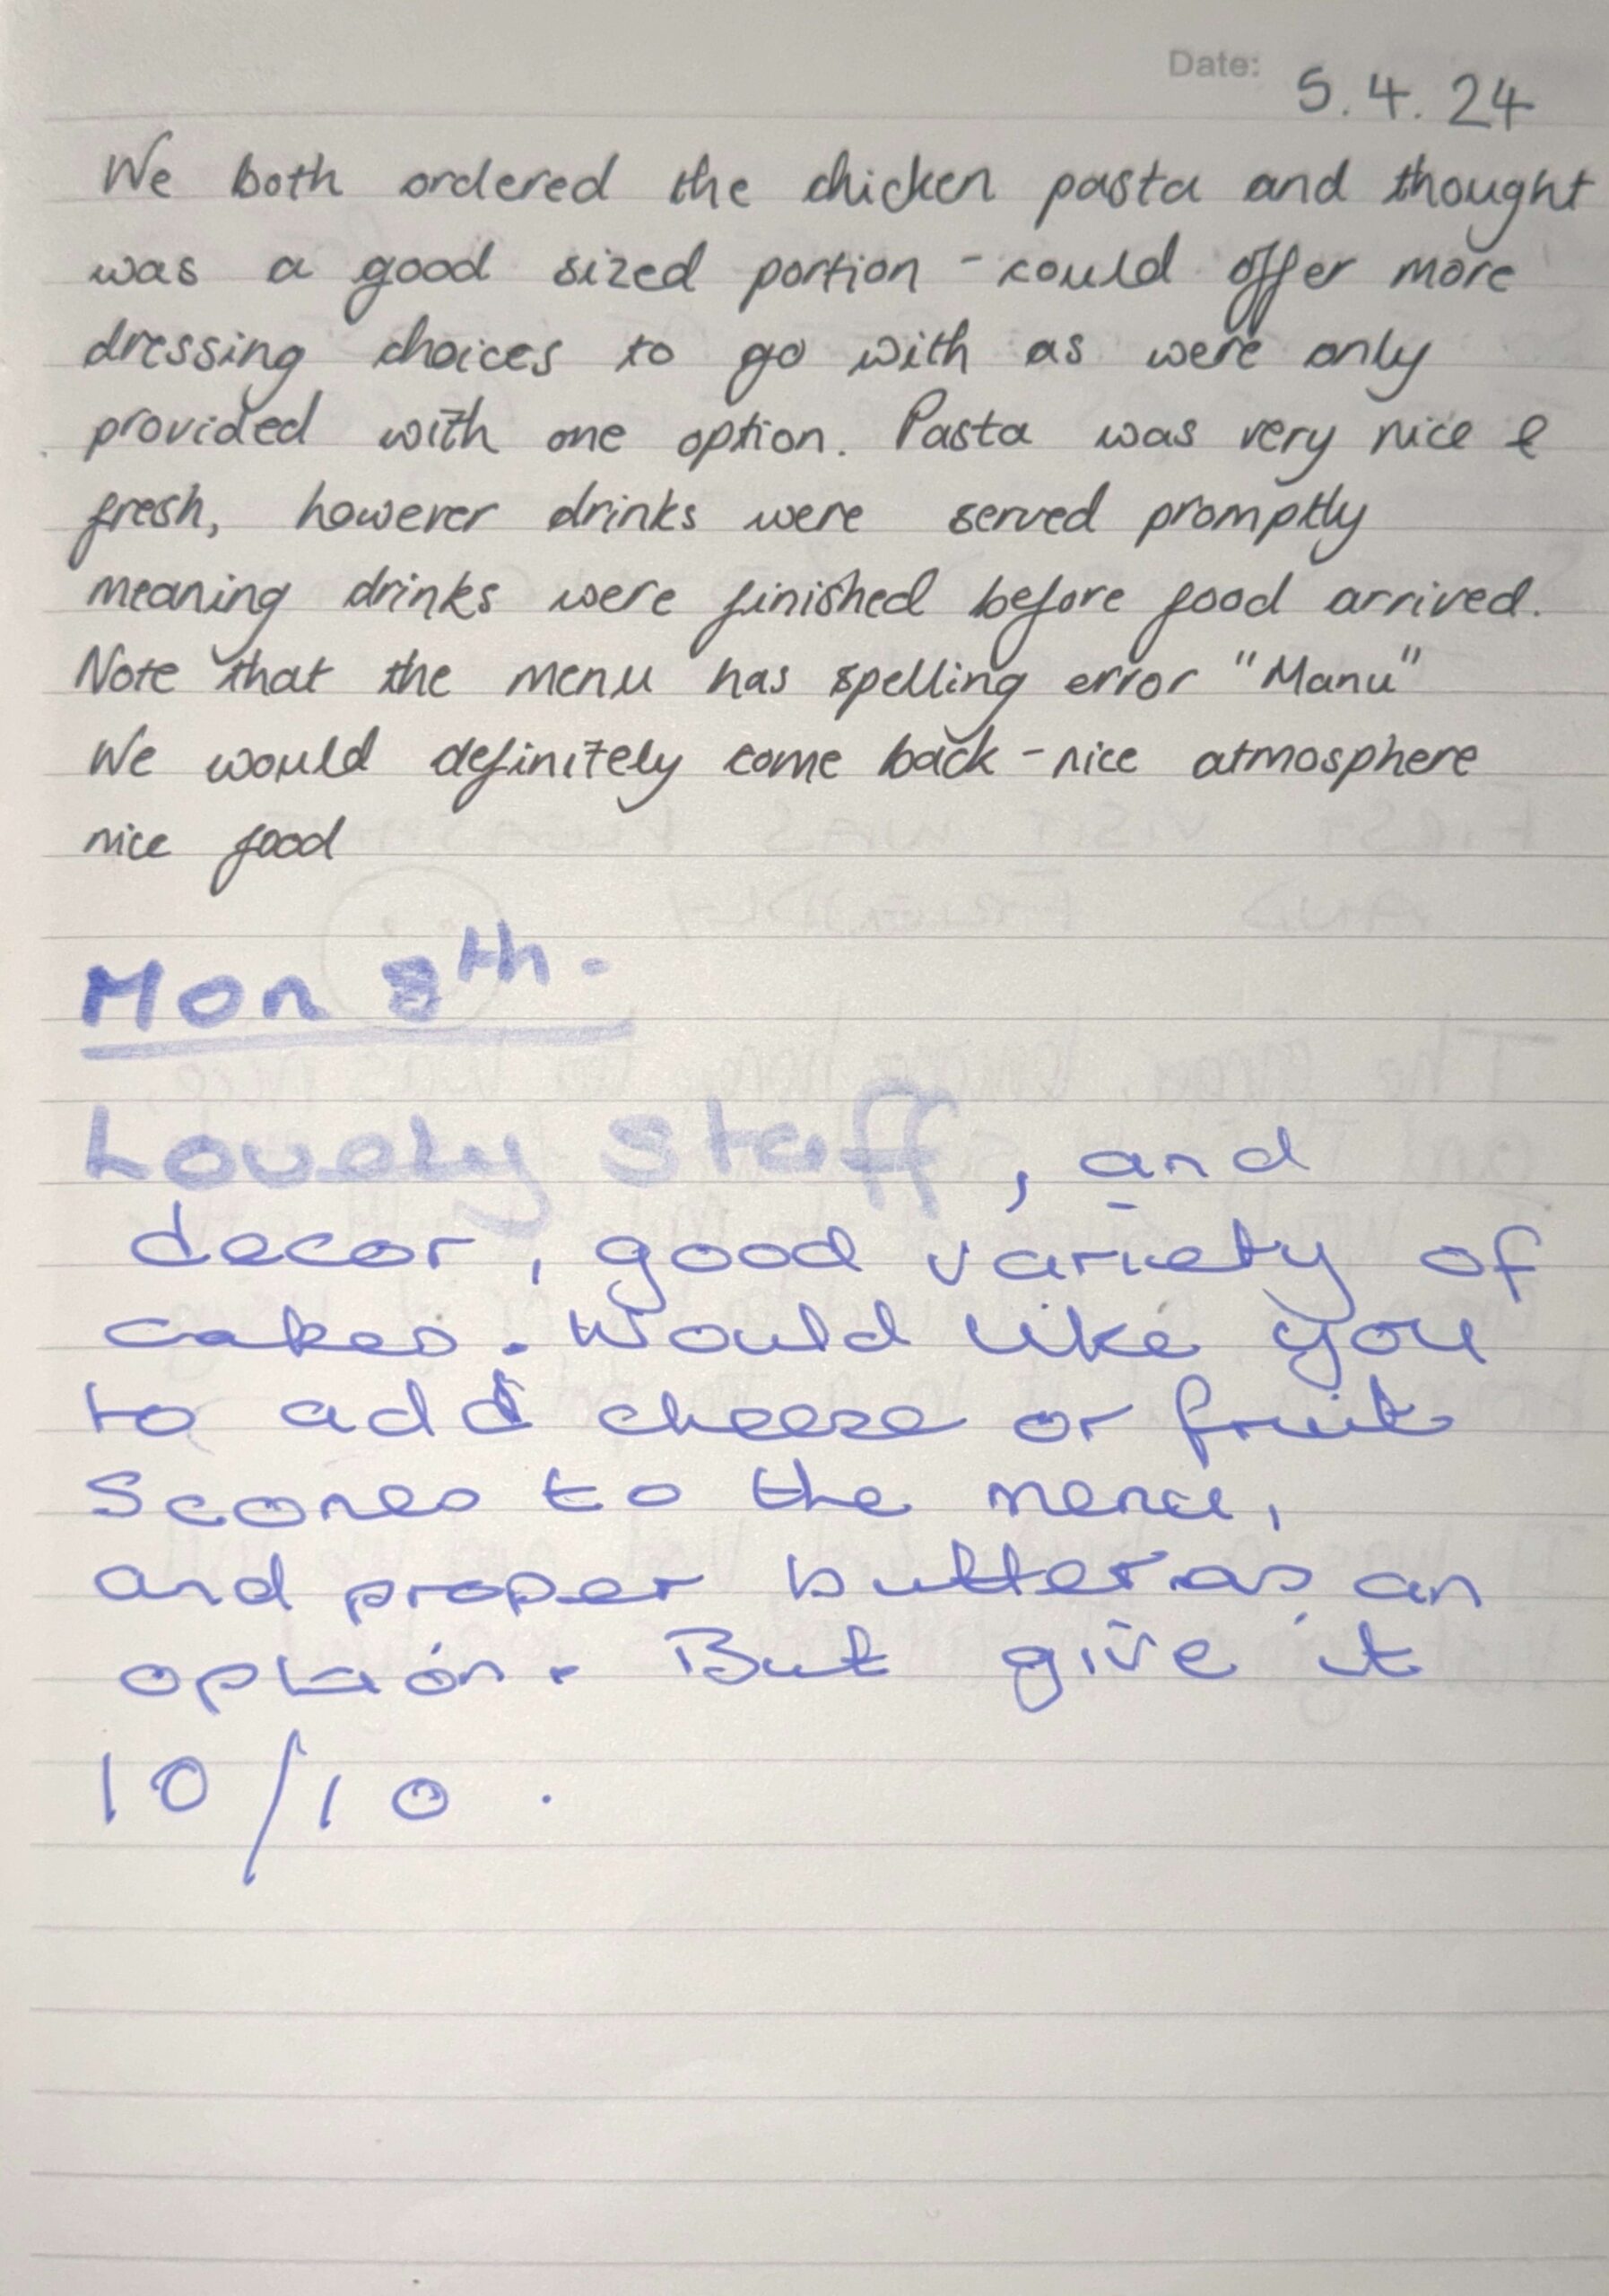 Date: 5.4.24
We both ordered the chicken pasta and thought
was a good sized portion - could offer more
dressing choices to go with as were only
provided with one option. Pasta was very nice &
fresh, however drinks were served promptly
meaning drinks were finished before food arrived.
Note that the menu has spelling error "Manu"
We would definitely come back - nice atmosphere
nice food
Mon 8th.
Lovely staff, and
decor, good variety of
cakes. Would like you
to add cheese or fruit
Scones to the menu,
and proper butter as an
option. But give it
10/10.